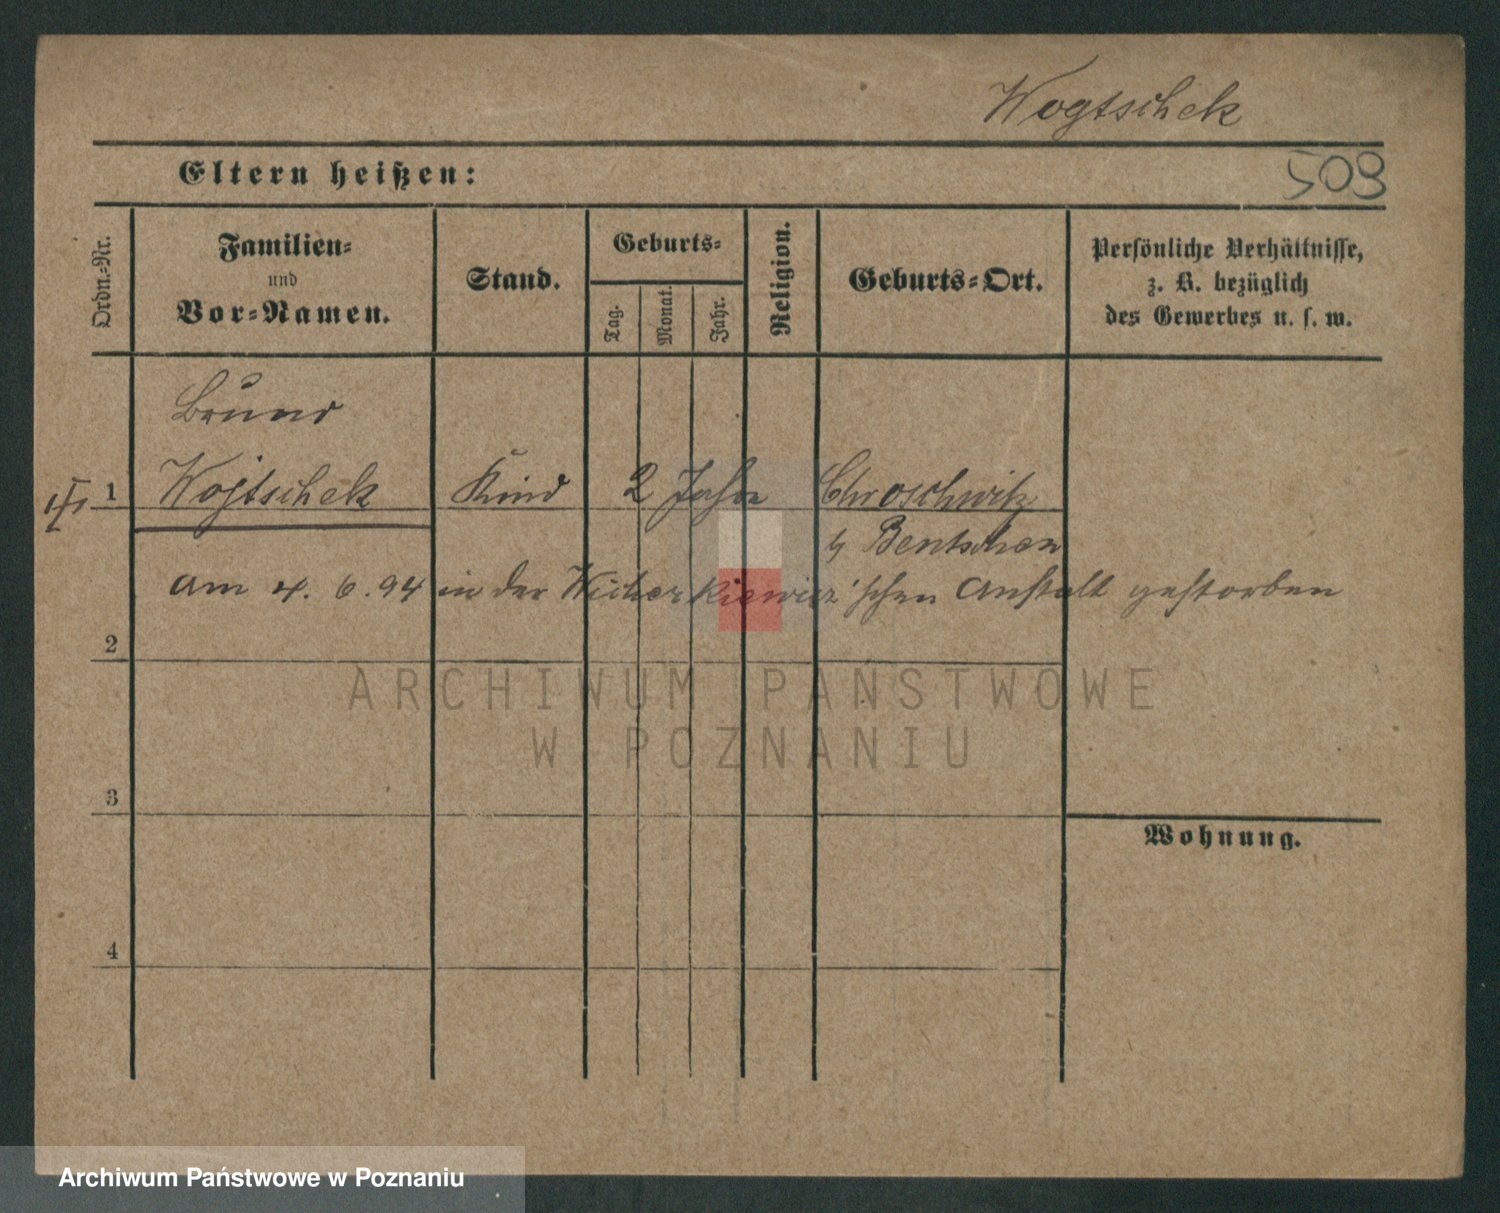 Wogtschek
Eltern heißen:
509
Ordn.-Nr.
Familien-
und
Vor-Namen.
Stand.
Geburts-
Tag.
Monat.
Jahr.
Religion.
Geburts-Ort.
Persönliche Verhältnisse,
z. B. bezüglich
des Gewerbes u. s. w.
Bruno
1 Wojtschek Kind 2 Jahre Chroschwitz
b/ Bentschen
am 4. 6. 94 in der Wicherkiewicz'schen Anstalt gestorben
2
ARCHIWUM PAŃSTWOWE
W POZNANIU
3
Wohnung.
4
Archiwum Państwowe w Poznaniu